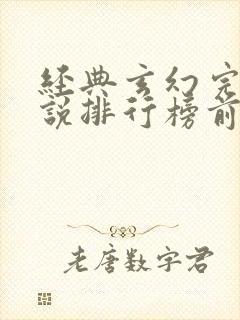 經典玄幻完
說排行榜前
老唐數字君